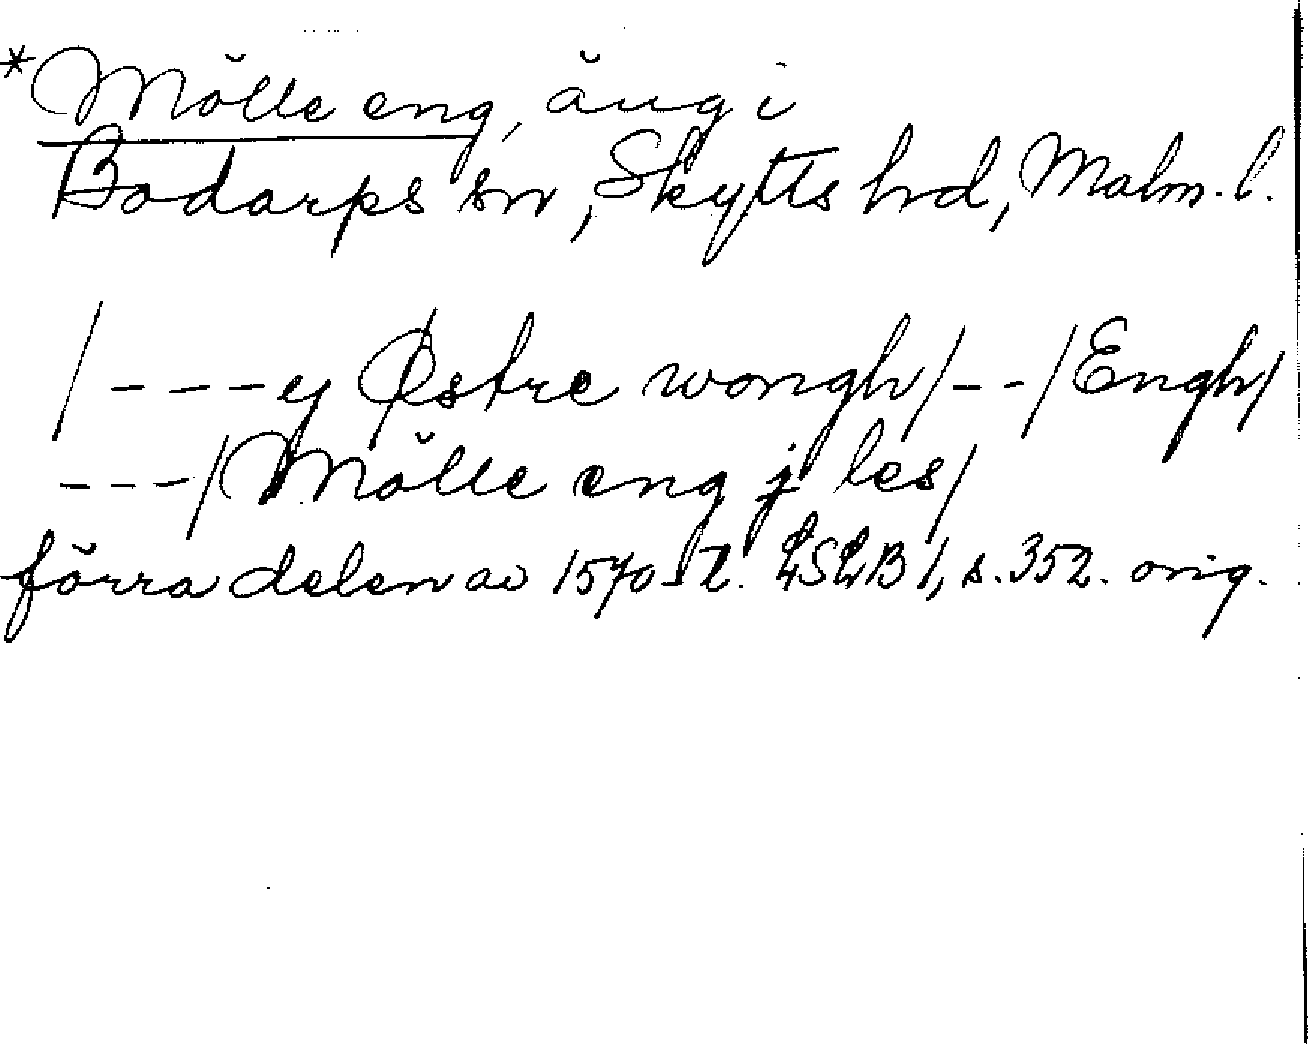 *Mölle eng, äng i
Bodarps sn, Skytts hd, Malm. l.
/----ej Østre wongh/--/Engh/
---/Mölle eng j les/
förra delen av 1570-t. LSLB 1, s. 352. orig.